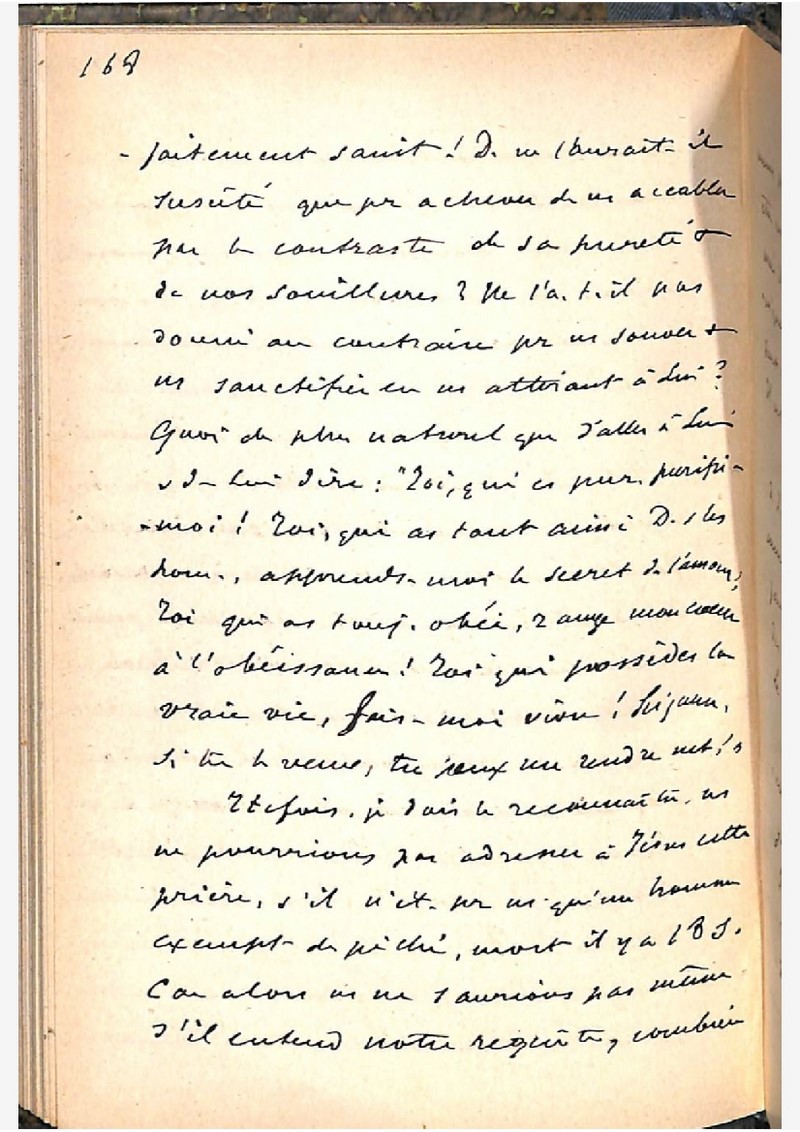 168
- faitement saint ! D. ne l'aurait-il
suscité que pr achever de ns accabler
par le contraste de sa pureté &
de nos souillures ? Ne l'a.t.il pas
donné au contraire pr ns sauver &
ns sanctifier en ns attirant à Lui ?
Quoi de plus naturel que d'aller à Lui
& de Lui dire : "Toi, qui es pur, purifie-
-moi ! Toi, qui as tant aimé D. & les
hom., apprends-moi le secret de l'amour,
Toi qui as touj. obéi, range mon cœur
à l'obéissance ! Toi qui possèdes la
vraie vie, fais-moi vivre ! Seigneur,
si tu le veux, tu peux me rendre net ! »
Ttefois, je dois le reconnaître, ns
ne pourrions pas adresser à Jésus cette
prière, s'il n'ét. pr ns qu'un homme
exempt de péché, mort il y a 18 s.
Car alors ns ne saurions pas même
s'il entend notre requête, combien